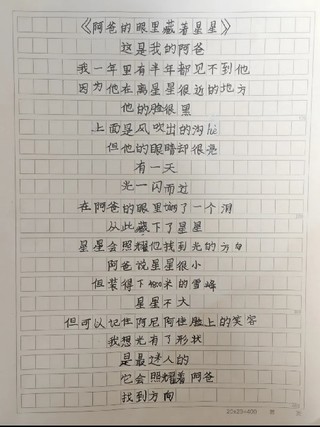 《阿爸的眼里藏着星星》
这是我的阿爸
我一年里有半年都见不到他
因为他在离星星很近的地方
他的脸很黑
上面是风吹出的沟hè
但他的眼睛却很亮
有一天
光一闪而过
在阿爸的眼里 了一个洞
从此藏下了星星
星星会照耀他找到光的方向
阿爸说星星很小
但装得下 米的雪峰
星星不大
但可以记住阿尼阿佳脸上的笑容
我想光有了形状
是最迷人的
它会照耀着阿爸
找到方向
20×20=400